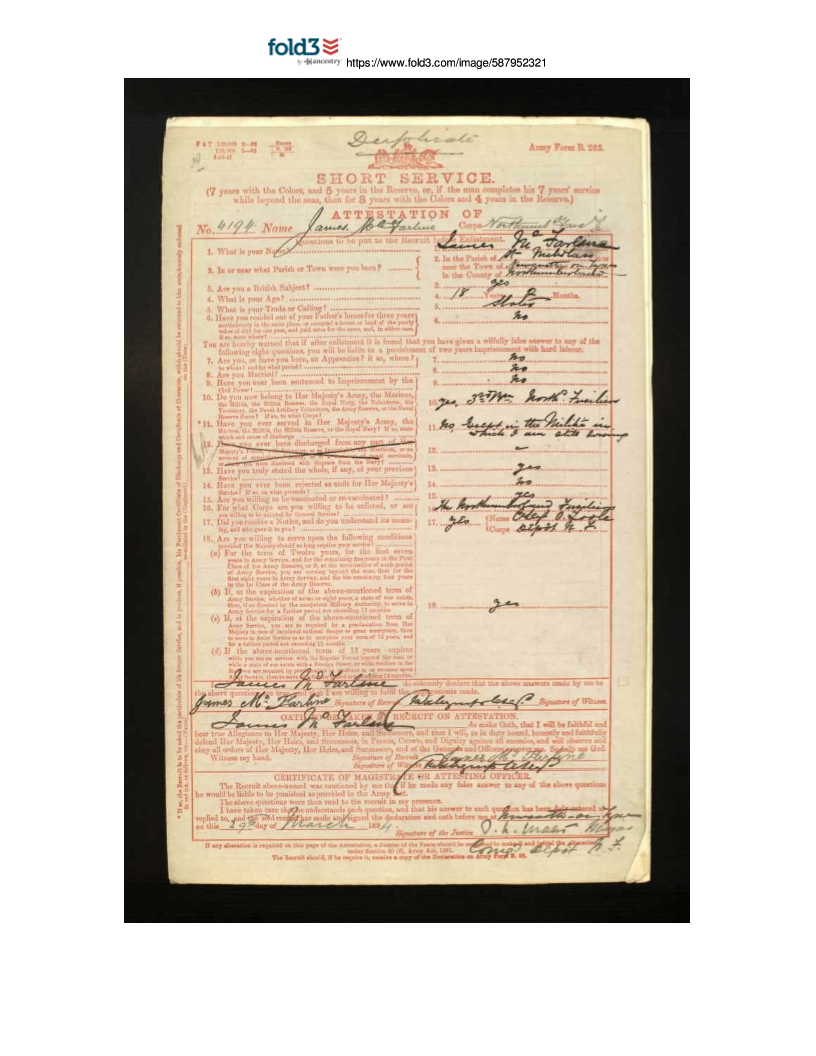 fold3
by ancestry
https://www.fold3.com/image/587952321
Duplicate
Army Form B. 265.
SHORT SERVICE.
(7 years with the Colors, and 5 years in the Reserve, or, if the man completes his 7 years' service
while beyond the seas, then for 8 years with the Colors and 4 years in the Reserve.)
ATTESTATION OF
No. 4194 Name James McFarline Corps
Questions to be put to the Recruit before Enlistment.
1. What is your Name? James McFarlane
2. In or near what Parish or Town were you born? 2. In the Parish of St Nicholas
near the Town of Newcastle on Tyne
in the County of Northumberland
3. Are you a British Subject? 3. yes
4. What is your Age? 4. 18 Years Months.
5. What is your Trade or Calling? 5.
6. Have you resided out of your Father's house for three years
continuously in the same place, or occupied a house or land of the yearly
value of £10 for one year, and paid rates for the same, and, in either case,
If so, state where? 6. No
You are hereby warned that if after enlistment it is found that you have given a wilfully false answer to any of the
following eight questions, you will be liable to a punishment of two years imprisonment with hard labour.
7. Are you, or have you been, an Apprentice? if so, where?
to whom? and for what period? 7. No
8. Are you Married? 8. No
9. Have you ever been sentenced to Imprisonment by the
Civil Power? 9. No
10. Do you now belong to Her Majesty's Army, the Marines,
the Militia, the Militia Reserve, the Royal Navy, the Volunteers, the
Yeomanry, the Naval Artillery Volunteers, the Army Reserve, or the Naval
Reserve Force? If so, to what Corps? 10. yes, 3rd Bn North. Fusiliers
*11. Have you ever served in Her Majesty's Army, the
Marines, the Militia, the Militia Reserve, or the Royal Navy? If so, state
which and cause of discharge 11. No, except in the Militia in
which I am still serving
12. Have you ever been discharged from any part of Her
Majesty's Forces 12.
13. Have you truly stated the whole, if any, of your previous
Service? 13. yes
14. Have you ever been rejected as unfit for Her Majesty's
Service? If so, on what grounds? 14. No
15. Are you willing to be vaccinated or re-vaccinated? 15. yes
16. For what Corps are you willing to be enlisted, or are
you willing to be enlisted for General Service? The Northumberland Fusiliers
17. Did you receive a Notice, and do you understand its mean-
ing, and who gave it to you? 17. yes Name
Corps Depôt N. F.
18. Are you willing to serve upon the following conditions
provided Her Majesty should so long require your service?
(a) For the term of Twelve years, for the first seven
years in Army Service, and for the remaining five years in the First
Class of the Army Reserve, or if, at the termination of such period
of Army Service, you are serving beyond the seas, then for the
first eight years in Army Service, and for the remaining four years
in the 1st Class of the Army Reserve.
(b) If, at the expiration of the above-mentioned term of
Army Service, whether of seven or eight years, a state of war exists,
then, if so directed by the competent Military Authority, to serve in
Army Service for a further period not exceeding 12 months. 18. yes
(c) If, at the expiration of the above-mentioned term of
Army Service, you are so required by a proclamation from Her
Majesty in case of imminent national danger or great emergency, then
to serve in Army Service so as to complete your term of 12 years, and
for a further period not exceeding 12 months.
(d) If the above-mentioned term of 12 years expires
while you are on service with the Regular Forces beyond the seas, or
while a state of war exists with a Foreign Power, or while Soldiers in the
Reserve are required by proclamation
James McFarlane do solemnly declare that the above answers made by me to
the above questions are true, and that I am willing to fulfil the engagements made.
James McFarline Signature of Recruit Signature of Witness.
OATH TO BE TAKEN BY RECRUIT ON ATTESTATION.
James McFarlane do make Oath, that I will be faithful and
bear true Allegiance to Her Majesty, Her Heirs, and Successors, and that I will, as in duty bound, honestly and faithfully
defend Her Majesty, Her Heirs, and Successors, in Person, Crown, and Dignity against all enemies, and will observe and
obey all orders of Her Majesty, Her Heirs, and Successors, and of the Generals and Officers set over me. So help me God.
Witness my hand. Signature of Recruit James McFarline
Signature of Witness
CERTIFICATE OF MAGISTRATE OR ATTESTING OFFICER.
The Recruit above-named was cautioned by me that if he made any false answer to any of the above questions
he would be liable to be punished as provided in the Army Act.
The above questions were then read to the recruit in my presence.
I have taken care that he understands each question, and that his answer to each question has been duly entered as
replied to, and the said recruit has made and signed the declaration and oath before me at Newcastle on Tyne
on this 29th day of March 1894.
Signature of the Justice
Comg Depôt N. F.
If any alteration is required on this page of the Attestation, a Justice of the Peace should be requested to make it and initial the alteration
under Section 80 (6), Army Act, 1881.
The Recruit should, if he require it, receive a copy of the Declaration on Army Form B.